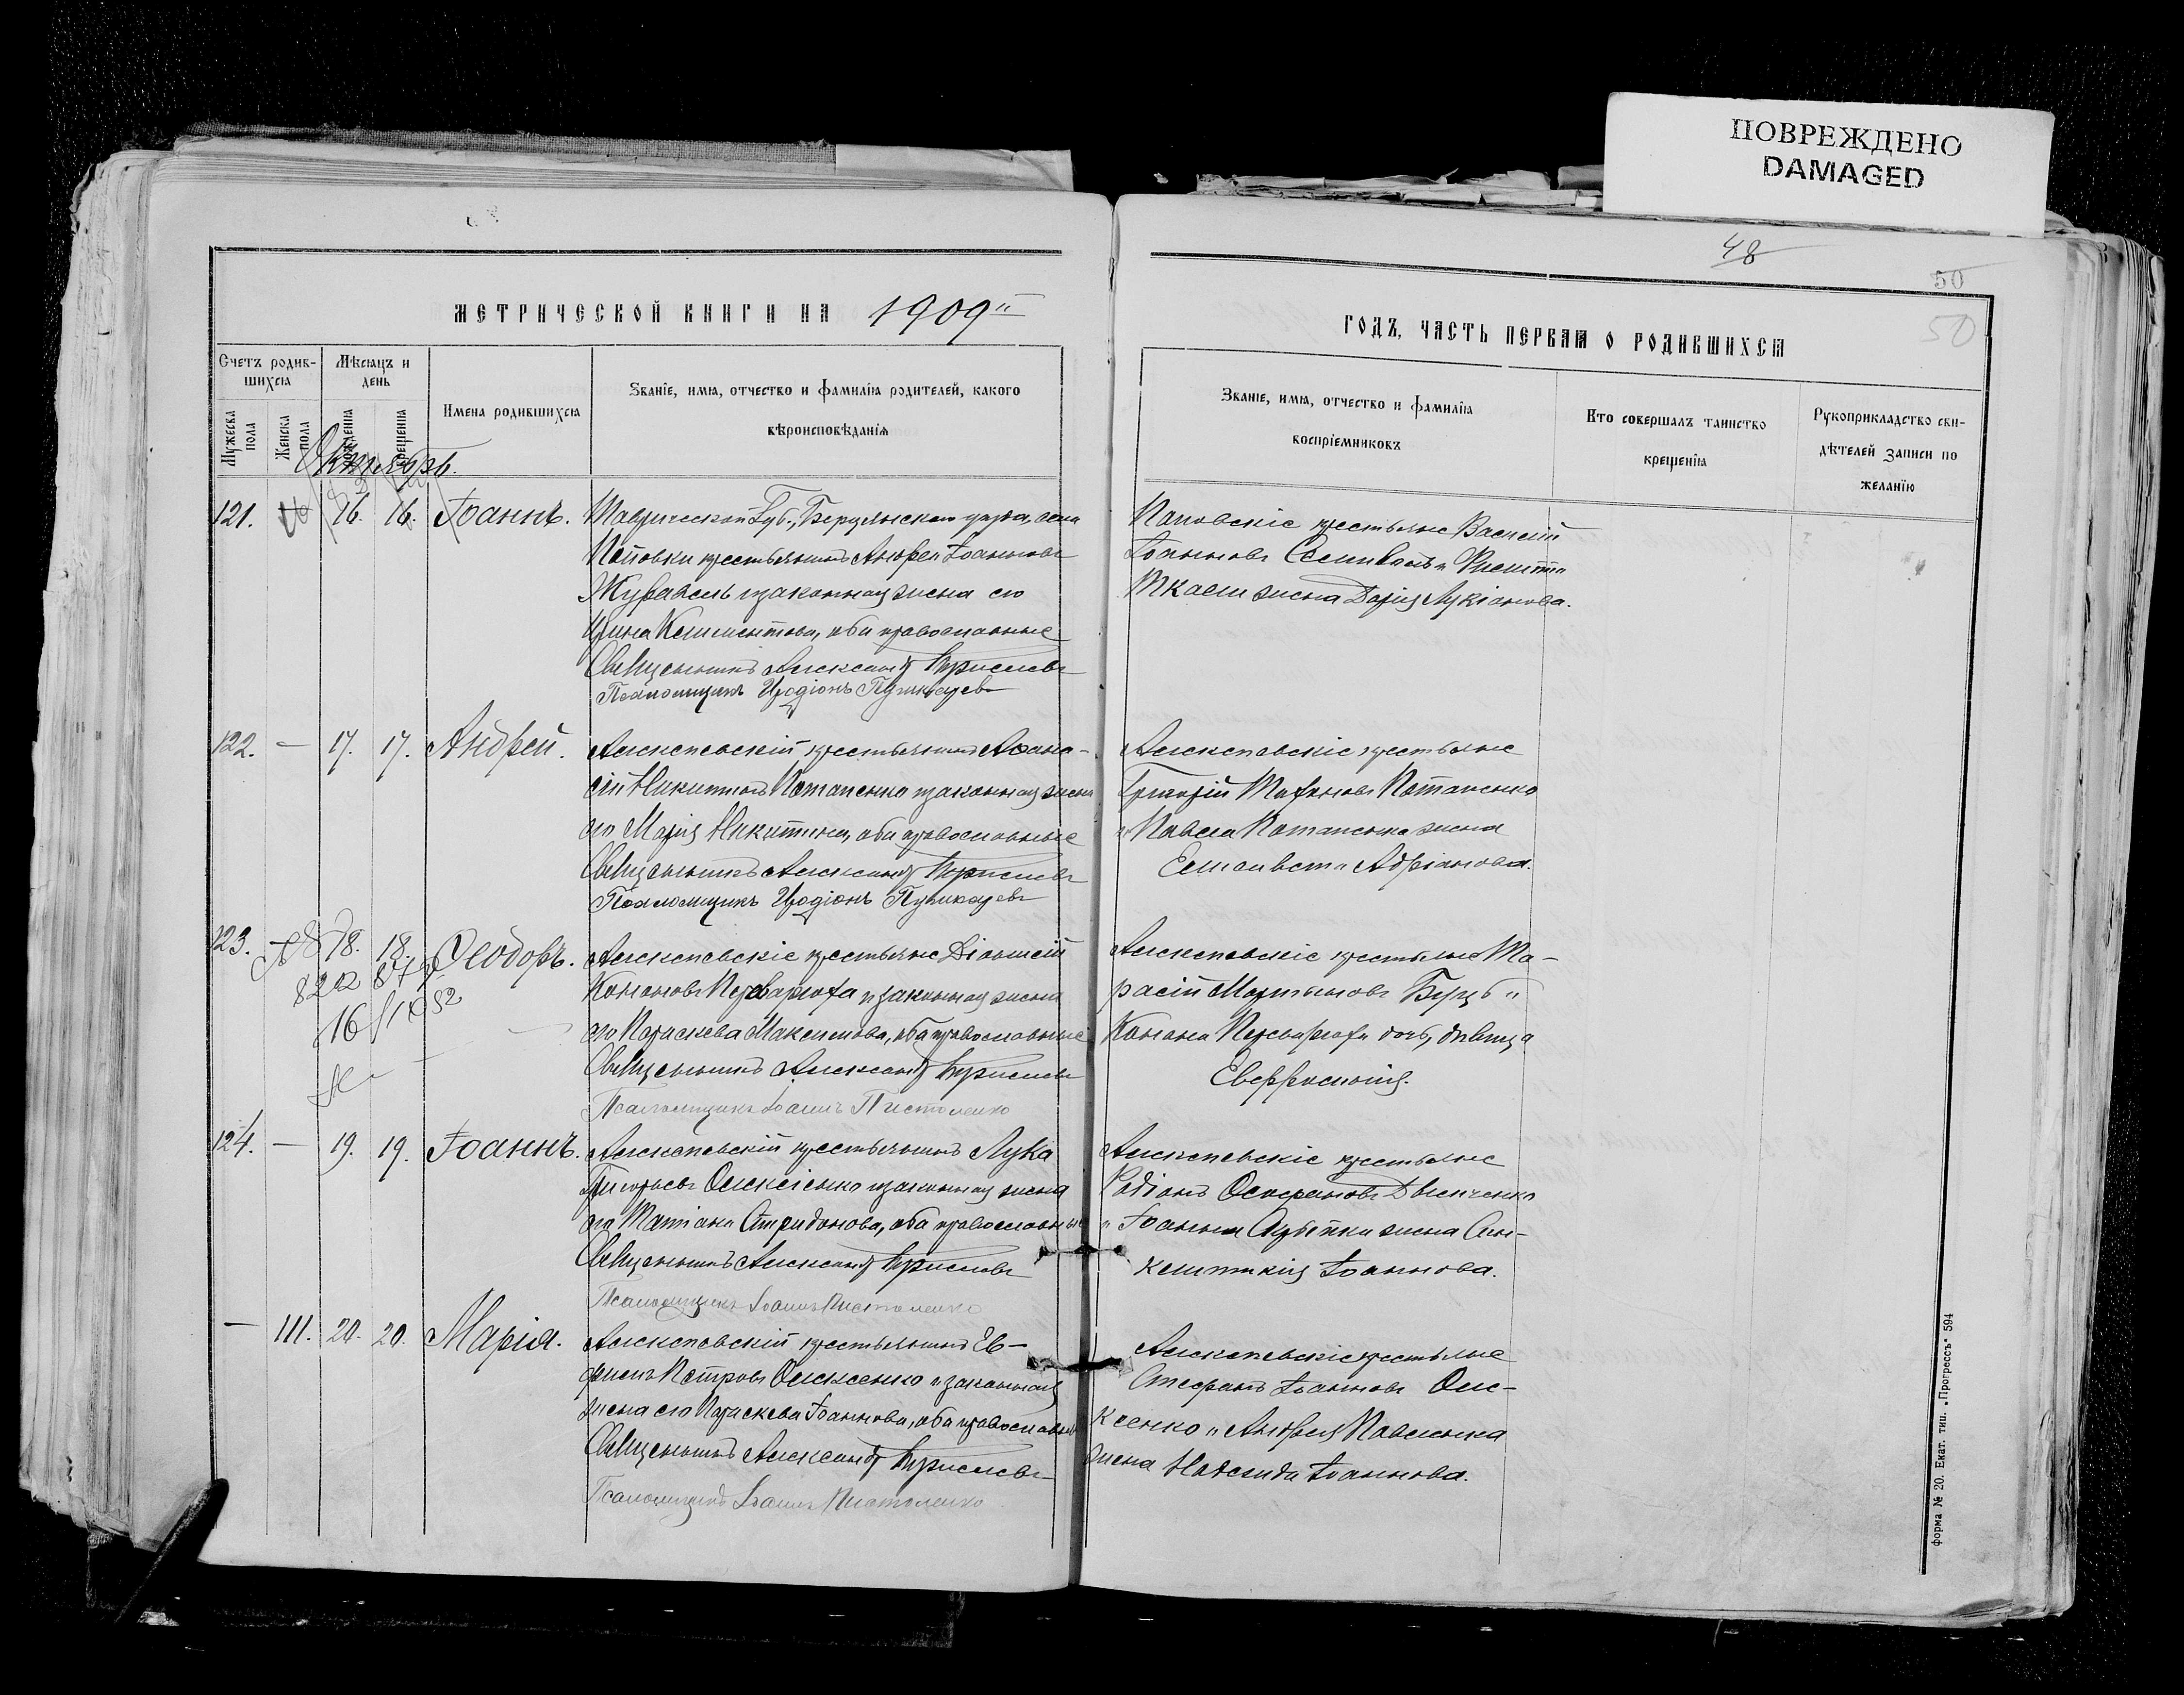 ПОВРЕЖДЕНО
DAMAGED
48
50
50
МЕТРИЧЕСКОЙ КНИГИ НА 1909й
ГОДЪ, ЧАСТЬ ПЕРВАЯ О РОДИВШИХСЯ
Счетъ родив-
шихся
Мѣсяцъ и
день
Мужеска
пола
Женска
пола
рожденія
крещенія
Имена родившихся
Званіе, имя, отчество и фамилія родителей, какого
вѣроисповѣданія
Званіе, имя, отчество и фамилія
воспріемниковъ
Кто совершалъ таинство
крещенія
Рукоприкладство сви-
дѣтелей записи по
желанію
Октябрь.
121. 16. 16. Іоаннъ.
Таврической Губ., Бердянскаго уѣзда, села
Поповки крестьянинъ Андрей Іоанновъ
Журавель и законная жена его
Ирина Климентова, оба православные
Священникъ Александръ
Псаломщикъ Иродіонъ Пушкаревъ
Поповскіе крестьяне Василій
Іоанновъ и
Ткача жена Дарія Лукіанова.
122. — 17. 17. Андрей.
Алексеевскій крестьянинъ Аѳана-
сій Никитинъ Потапенко и законная жена
его Марія Никитина, оба православные
Священникъ Александръ
Псаломщикъ Иродіонъ Пушкаревъ
Алексеевскіе крестьяне
Григорій Потапенко
и Павла Потапенка жена
Елисавета Адріанова.
123. — 18. 18. Ѳеодоръ.
16/I 52
Алексеевскіе крестьяне Діонисій
Кононовъ и законная жена
его Параскева Максимова, оба православные
Священникъ Александръ
Псаломщикъ Іоаннъ Пистоленко
Алексеевскіе крестьяне Та-
расій Мартыновъ и
Конона дочь, дѣвица
Евфросинія.
124. — 19. 19. Іоаннъ.
Алексеевскій крестьянинъ Лука
Григорьевъ Олексіенко и законная жена
его Татіана Спиридонова, оба православные
Священникъ Александръ
Псаломщикъ Іоаннъ Пистоленко
Алексеевскіе крестьяне
Родіонъ
и Іоанна жена Син-
клитикія Іоаннова.
— 111. 20. 20. Марія.
Алексеевскій крестьянинъ Ев-
фимъ Петровъ Олексенко и законная
жена его Параскева Іоаннова, оба православные
Священникъ Александръ
Псаломщикъ Іоаннъ Пистоленко
Алексеевскіе крестьяне
Стефанъ Іоанновъ Олек-
сенко и Андрея Павленка
жена Надежда Іоаннова.
форма № 20. Екат. тип. „Прогрессъ“ 594